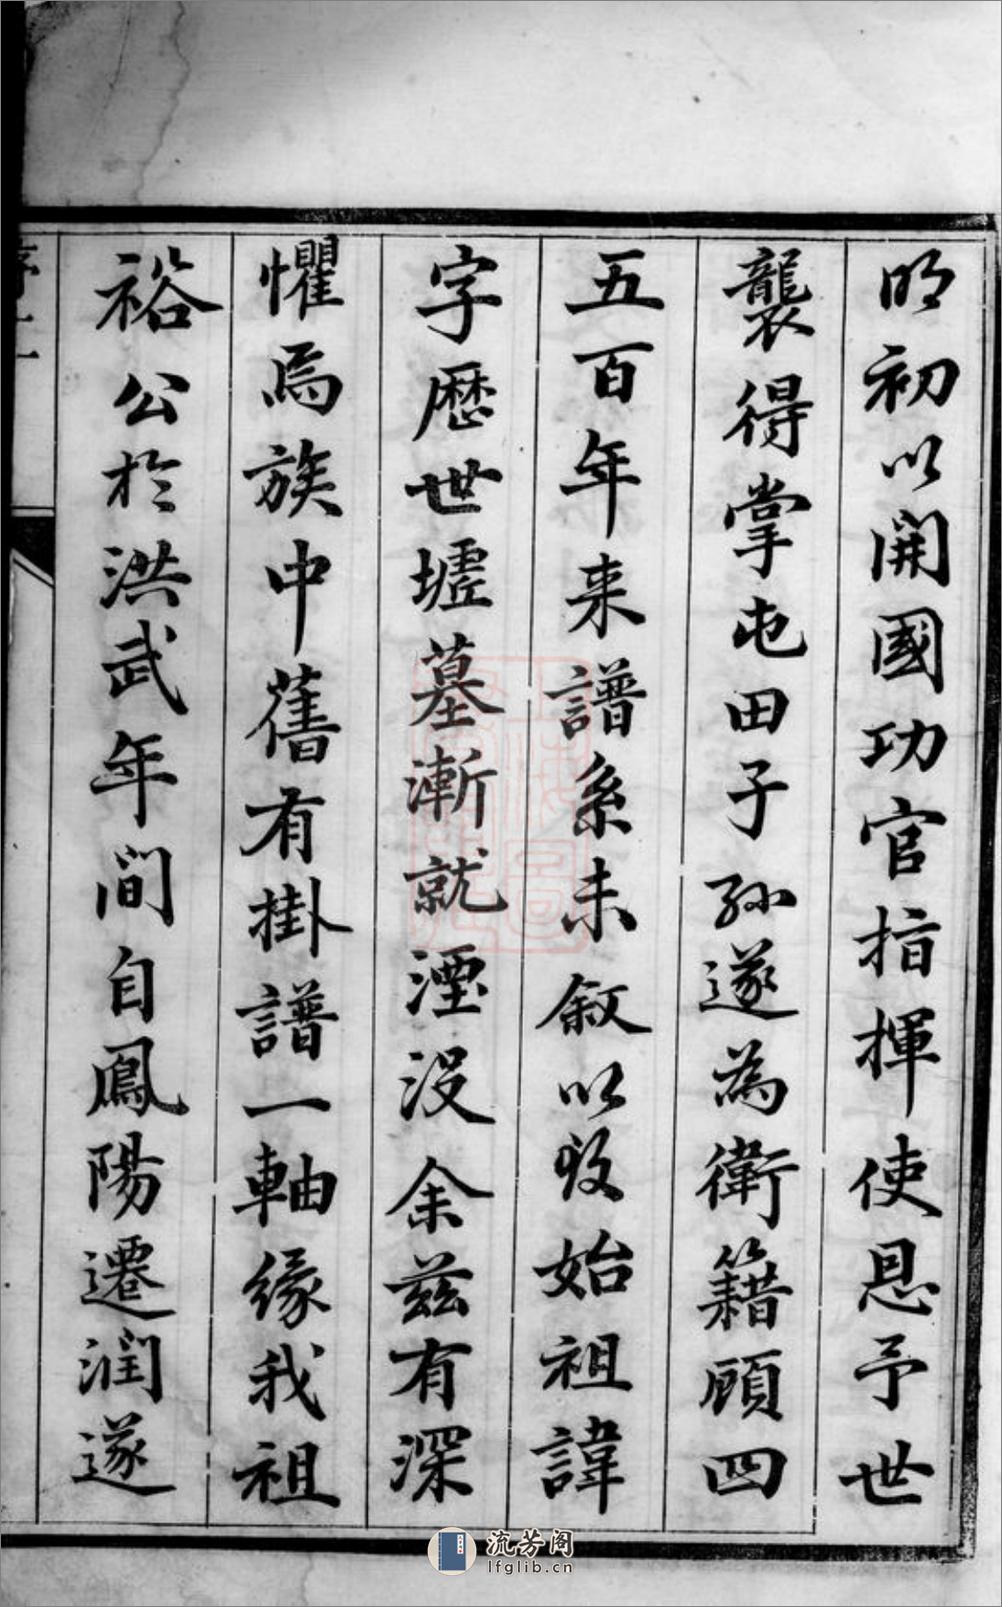 明初以開國功官指揮使恩予世
襲得掌屯田子孫遂為衛籍顧四
五百年来譜系未敘以致始祖諱
字歷世墟墓漸就湮没余兹有深
懼焉族中舊有掛譜一軸緣我祖
裕公於洪武年間自鳳陽遷潤遂
流芳阁
lfglib.cn